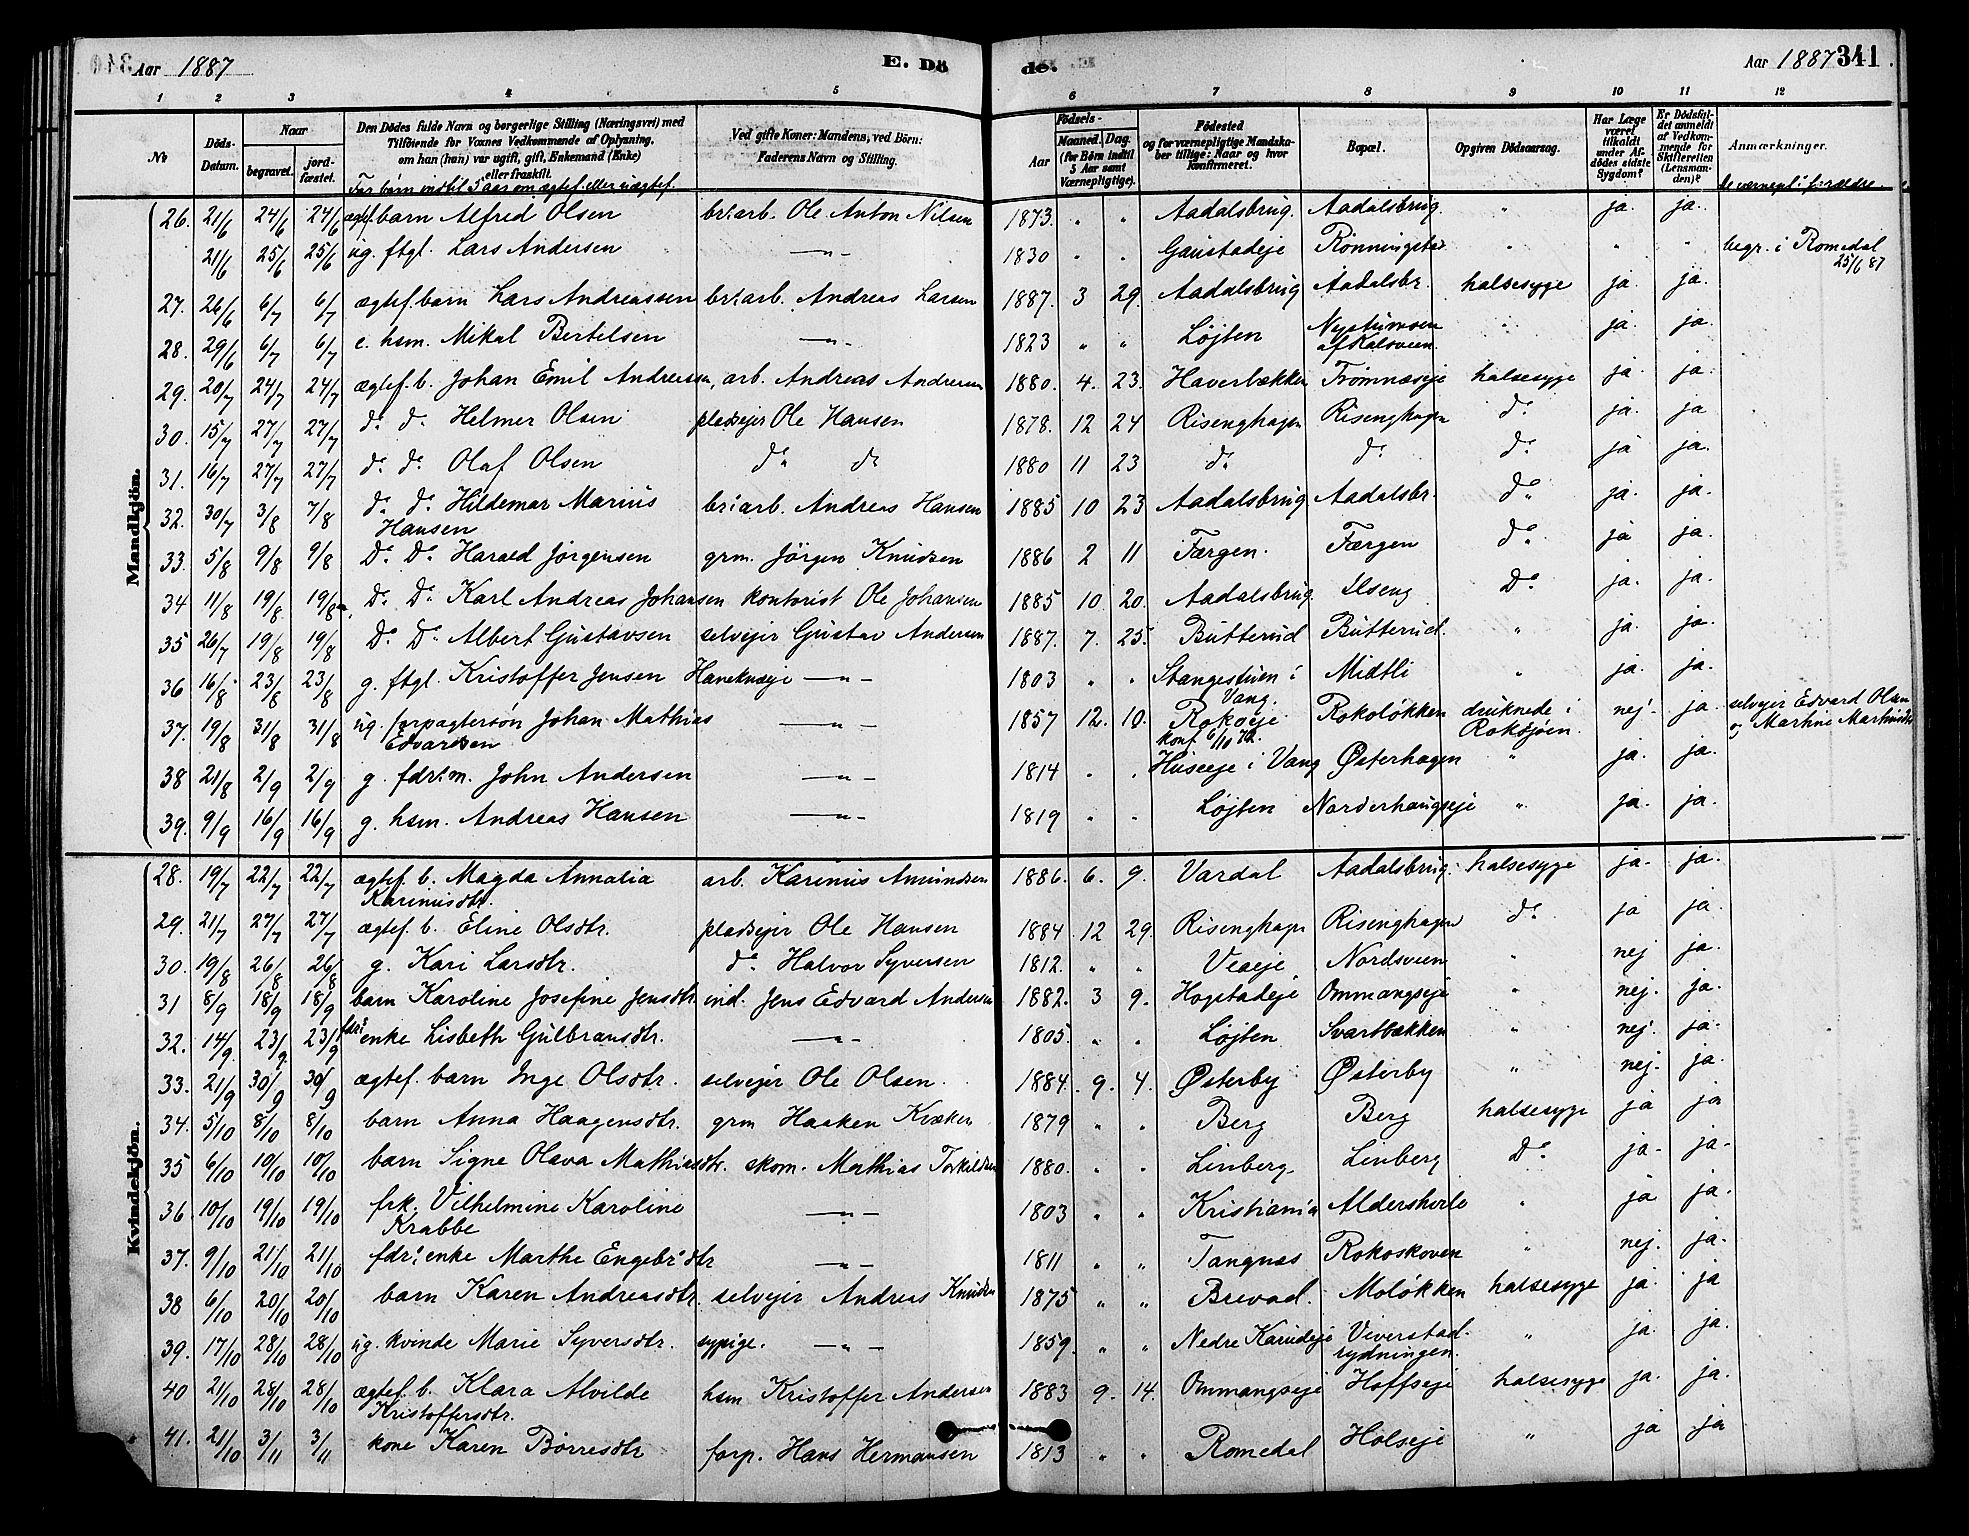 Aar 1887 E. Dö de. Aar 1887 341
1 2 3 4 5 6 7 8 9 10 11 12
No
Döds-Datum.
Naar
begravet.
jord-fæstet.
Den Dödes fulde Navn og borgerlige Stilling (Næringsvei) med
Tilföiende for Voxnes Vedkommende af Oplysning,
om han (hun) var ugift, gift, Enkemand (Enke)
eller fraskilt.
For børn indtil 5 aar om ægtef. eller uægtef.
Ved gifte Koner: Mandens, ved Börn:
Faderens Navn og Stilling.
Födsels-
Aar
Maaned. Dag.
(for Börn indtil
5 Aar samt
Værnepligtige).
Födested
og for værnepligtige Mandska-
ber tillige: Naar og hvor
konfirmeret.
Bopæl.
Opgiven Dödsaarsag.
Har Læge
været
tilkaldt
under Af-
dödes sidste
Sygdom?
Er Dödsfal-
det anmeldt
af Vedkom-
mende for
Skifteretten
(Lensman-
den)?
Anmærkninger.
De værnepl. i forældre.
Mandkjön.
26. 21/6 24/6 24/6 ægtf. barn Alfred Olsen br: arb. Ole Anton Nilsen 1873. " " Aadalsbrug. Aadalsbrug " ja. ja.
21/6 25/6 25/6 ug. ftgl. Lars Andersen —"— 1830 " " Gaustadeje " " " begr. i Romedal
25/6 87
27. 26/6 6/7 6/7 ægtef. barn Lars Andreassen br: arb. Andreas Larsen 1887. 3 29. Aadalsbrug Aadalsbr. halsesyge ja. ja.
28. 29/6 6/7 6/7 e. hsm. Mikal Bertelsen —"— 1823 " " Løjten Nystumoen
af Kalsveen. " ja. ja.
29. 20/7 24/7 24/7 ægtef. b. Johan Emil Andreasen, arb. Andreas Andersen 1880. 4. 23. Haverbækken Trømnæseje halsesyge ja. ja.
30. 15/7 27/7 27/7 do do Helmer Olsen pladsejer Ole Hansen 1878. 12 24 Risenghagen Risenghagen do ja. ja
31. 16/7 27/7 27/7 do do Olaf Olsen do do 1880 11 23 do do do ja ja.
32. 30/7 3/8 7/8 do do Hildemar Marius
Hansen br: arb. Andreas Hansen 1885 10 23 Aadalsbrug Aadalsbr. do ja. ja.
33. 5/8 9/8 9/8 Do Do Harald Jørgensen grm. Jörgen Knudsen 1886 2 11 Færgen. Færgen do ja ja.
34 11/8 19/8 19/8 Do Do Karl Andreas Johansen kontorist Ole Johansen 1885 10 20. Aadalsbrug. Ilseng Do ja. ja.
35 26/7 19/8 19/8 Do Do Albert Gustavsen selvejer Gustav Andersen 1887. 7. 25. Butterud Butterud. " ja. ja.
36 16/8 23/8 23/8 g. ftgl. Kristoffer Jensen Haneknæje —"— 1803 " " Stangestuen i
Vang. Midtli " ja. ja.
37. 19/8 31/8 31/8 ug. forpagtersøn Johan Mathias
Edvardsen —"— 1857 12. 10. Rokoeje
konf. 6/10 72. Rokoløkken druknede i
Roksjøen. nej. ja. selvejer Edvard Olsen
og Marthe Martinsdtr
38 21/8 2/9 2/9 g. fdr: m. John Andersen —"— 1814 " " Huseeje i Vang Østerhagen " ja. ja.
39. 9/9 16/9 16/9 g. hsm. Andreas Hansen —"— 1819 " " Løjten Norderhaugseje " ja. ja.
Kvindekjön.
28. 19/7 22/7 22/7 ægtef. b. Magda Annalia
Karinusdtr. arb. Karinus Amundsen 1886. 6. 9. Vardal Aadalsbrug. halsesyge ja. ja.
29. 21/7 27/7 27/7 ægtef. b. Eline Olsdtr. pladsejer Ole Hansen 1884. 12 29. Risenghagen Risenghagen do ja ja.
30. 19/8 26/8 26/8 g. Kari Larsdtr. do Halvor Syversen 1812. " " Veaeje Nordsveen " nej ja.
31 8/9 18/9 18/9 barn Karoline Josefine Jensdtr. ind. Jens Edvard Andersen 1882. 3 9. Hogstadeje Ommangseje " nej. ja.
32. 14/9. 23/9. 23/9 fdr: enke Lisbeth Gulbransdtr. —"— 1805. " " Løjten Svartbækken " nej. ja.
33. 21/9 30/9 30/9 ægtef. barn Inge Olsdtr. selvejer Ole Olsen. 1884. 9. 4. Østerby Østerby " nej. ja.
34. 5/10 8/10 8/10 barn Anna Haagensdtr. grm Haaken Kvæken 1879 " " Berg Berg halsesyge ja ja
35 6/10 10/10 10/10 barn Signe Olava Mathiasdtr. skom. Mathias Torkildsen 1880. " " Linberg Linberg Do ja. ja.
36. 10/10 19/10 19/10 frk. Vilhelmine Karoline
Krabbe —"— 1803 " " Kristiania Aldershvile " ja ja.
37. 9/10 21/10 21/10 fdr: enke Marthe Engebr:dtr —"— 1811 " " Tangnæs Rokoskoven " nej. ja.
38 6/10 20/10 20/10 barn Karen Andreasdtr. selvejer Andreas Knudsen 1875 " " Brevad. Moløkken halsesyge ja. ja
39. 17/10 28/10 28/10 ug. kvinde Marie Syversdtr. sypige. —"— 1859. " " Nedre Karudeje Viverstad-
rydningen. " ja. ja.
40 21/10 28/10 28/10 ægtef. b. Klara Alvilde
Kristoffersdtr. hsm Kristoffer Andersen 1883 9. 14. Ommangseje Hoffseje halsesyge ja. ja.
41. 21/10 3/11 3/11 kone Karen Børresdtr forp. Hans Hermansen 1813 " " Romedal Holseje " ja ja